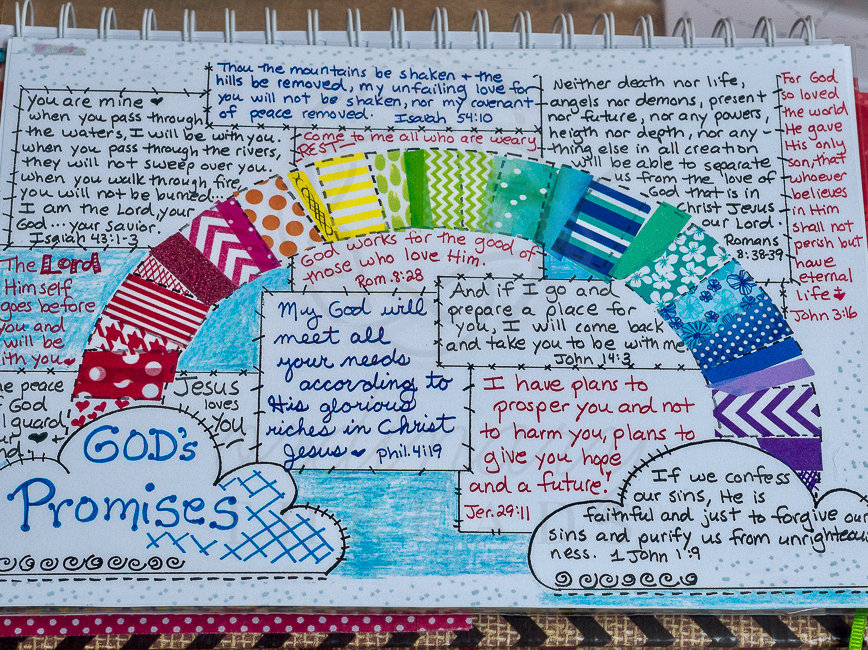 Thou the mountains be shaken + the
hills be removed, my unfailing love for
you will not be shaken, nor my covenant
of peace removed. Isaiah 54:10
you are mine ♥
when you pass through
the waters, I will be with you.
when you pass through the rivers,
they will not sweep over you.
when you walk through fire
you will not be burned...
I am the Lord, your
God ... your savior.
Isaiah 43:1-3
come to me all who are weary
REST
Neither death nor life,
angels nor demons, present
nor future, nor any powers,
heigth nor depth, nor any-
thing else in all creation
will be able to separate
us from the love of
God that is in
Christ Jesus
our Lord.
Romans
8:38-39
For God
so loved
the world
He gave
His only
son, that
whoever
believes
in Him
shall not
perish but
have
eternal
life ♥
John 3:16
The Lord
Himself
goes before
you and
will be
with you ♥
God works for the good of
those who love Him.
Rom. 8:28
My God will
meet all
your needs
according to
His glorious
riches in Christ
Jesus ♥ Phil. 4:19
And if I go and
prepare a place for
you, I will come back
and take you to be with me
John 14:3
I have plans to
prosper you and not
to harm you, plans to
give you hope
and a future!
Jer. 29:11
the peace
of God
guard
Jesus
loves
you
GOD's
Promises
If we confess
our sins, He is
faithful and just to forgive our
sins and purify us from unrighteous
ness. 1 John 1:9